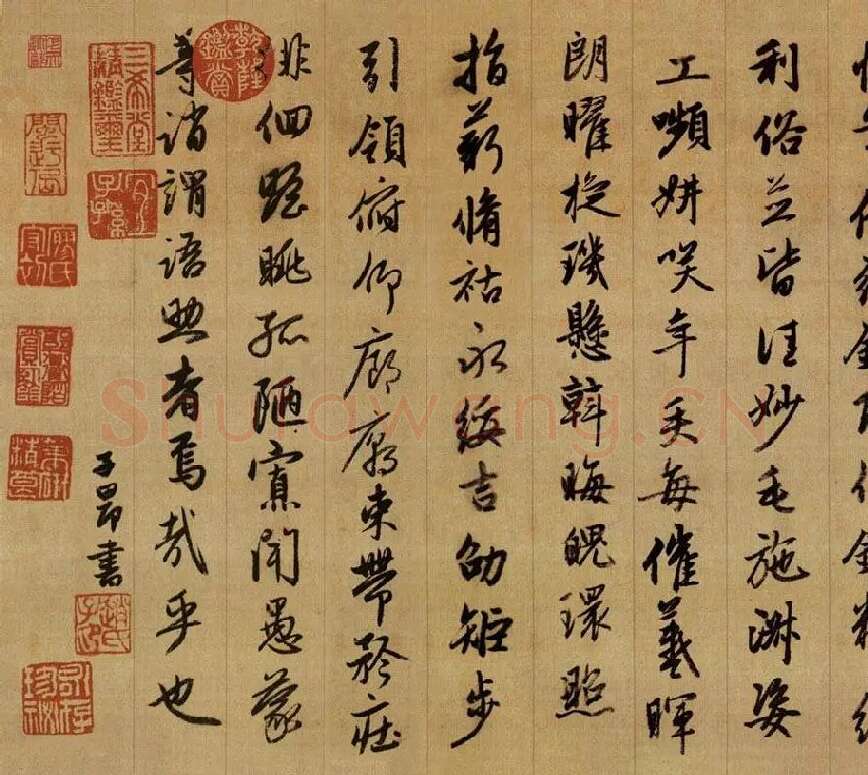 利俗並皆佳妙毛施淑姿
工嚬妍咲年矢每催羲暉
朗曜旋璣懸斡晦魄環照
指薪脩祜永綏吉劭矩步
引領俯仰廊廟束帶矜莊
徘徊瞻眺孤陋寡聞愚蒙
等誚謂語助者焉哉乎也
子昂書
乾隆鑑賞
三希堂精鑑璽
宜子孫
趙氏子昂
Shufawang.CN